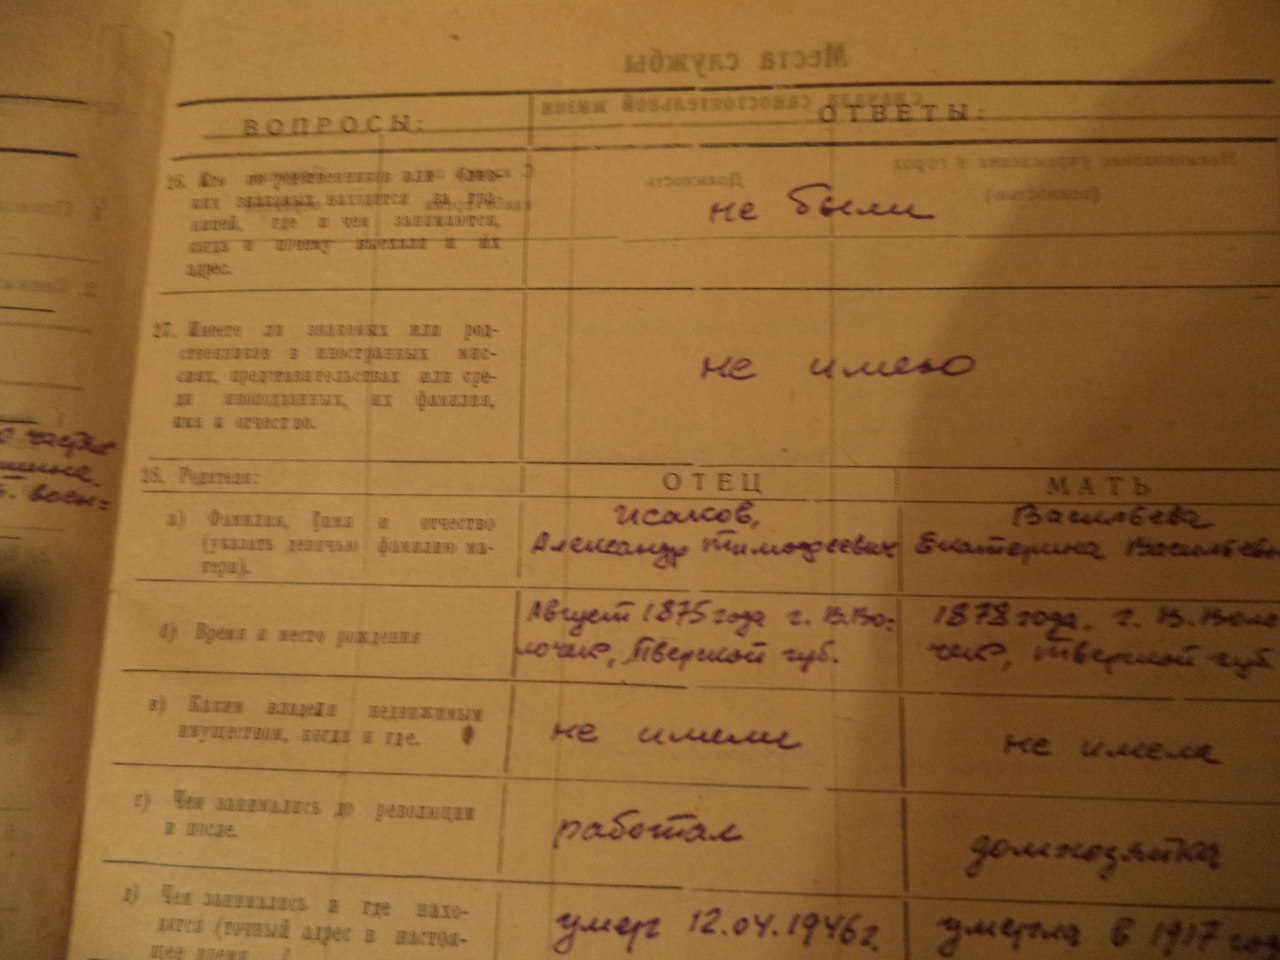 Места службы
с начала самостоятельной жизни
ВОПРОСЫ:
ОТВЕТЫ:
26. Кто из родственников или близ-
ких знакомых находится за гра-
ницей, где и чем занимаются,
когда и почему выехали и их
адрес.
не были
27. Имеете ли знакомых или род-
ственников в иностранных мис-
сиях, представительствах или сре-
ди иноподданных, их фамилия,
имя и отчество.
не имею
28. Родители:
ОТЕЦ
МАТЬ
а) Фамилия, имя и отчество
(указать девичью фамилию ма-
тери).
Исаков,
Александр Тимофеевич
Васильева
Екатерина Васильевн
б) Время и место рождения
Август 1875 года г. В. Во-
лочек, Тверской губ.
1878 года. г. В. Воло
чек, Тверской губ
в) Каким владели недвижимым
имуществом, когда и где.
не имели
не имела
г) Чем занимались до революции
и после.
работал
домхозяйка
д) Чем занимались и где нахо-
дятся (точный адрес в настоя-
щее время
умер 12.04.1946 г.
умерла в 1917 год